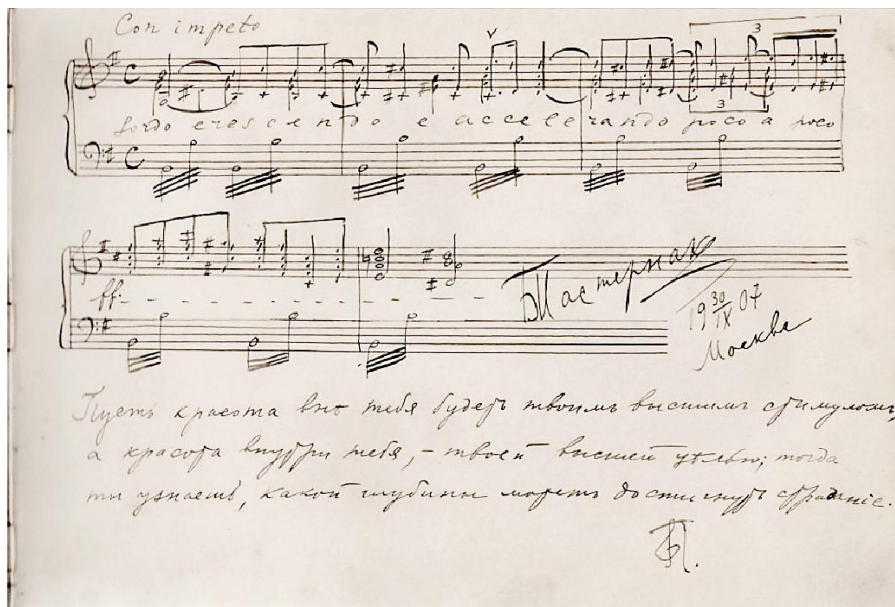 Con impeto
3
sordo crescendo e accelerando poco a poco
3
ff.
БПастернак
19 30/IX 07
Москва
Пусть красота вне тебя будетъ твоимъ высшимъ стимуломъ,
а красота внутри тебя, – твоей высшей цѣлью; тогда
ты узнаешь, какой глубины можетъ достигнуть страданіе.
БП.